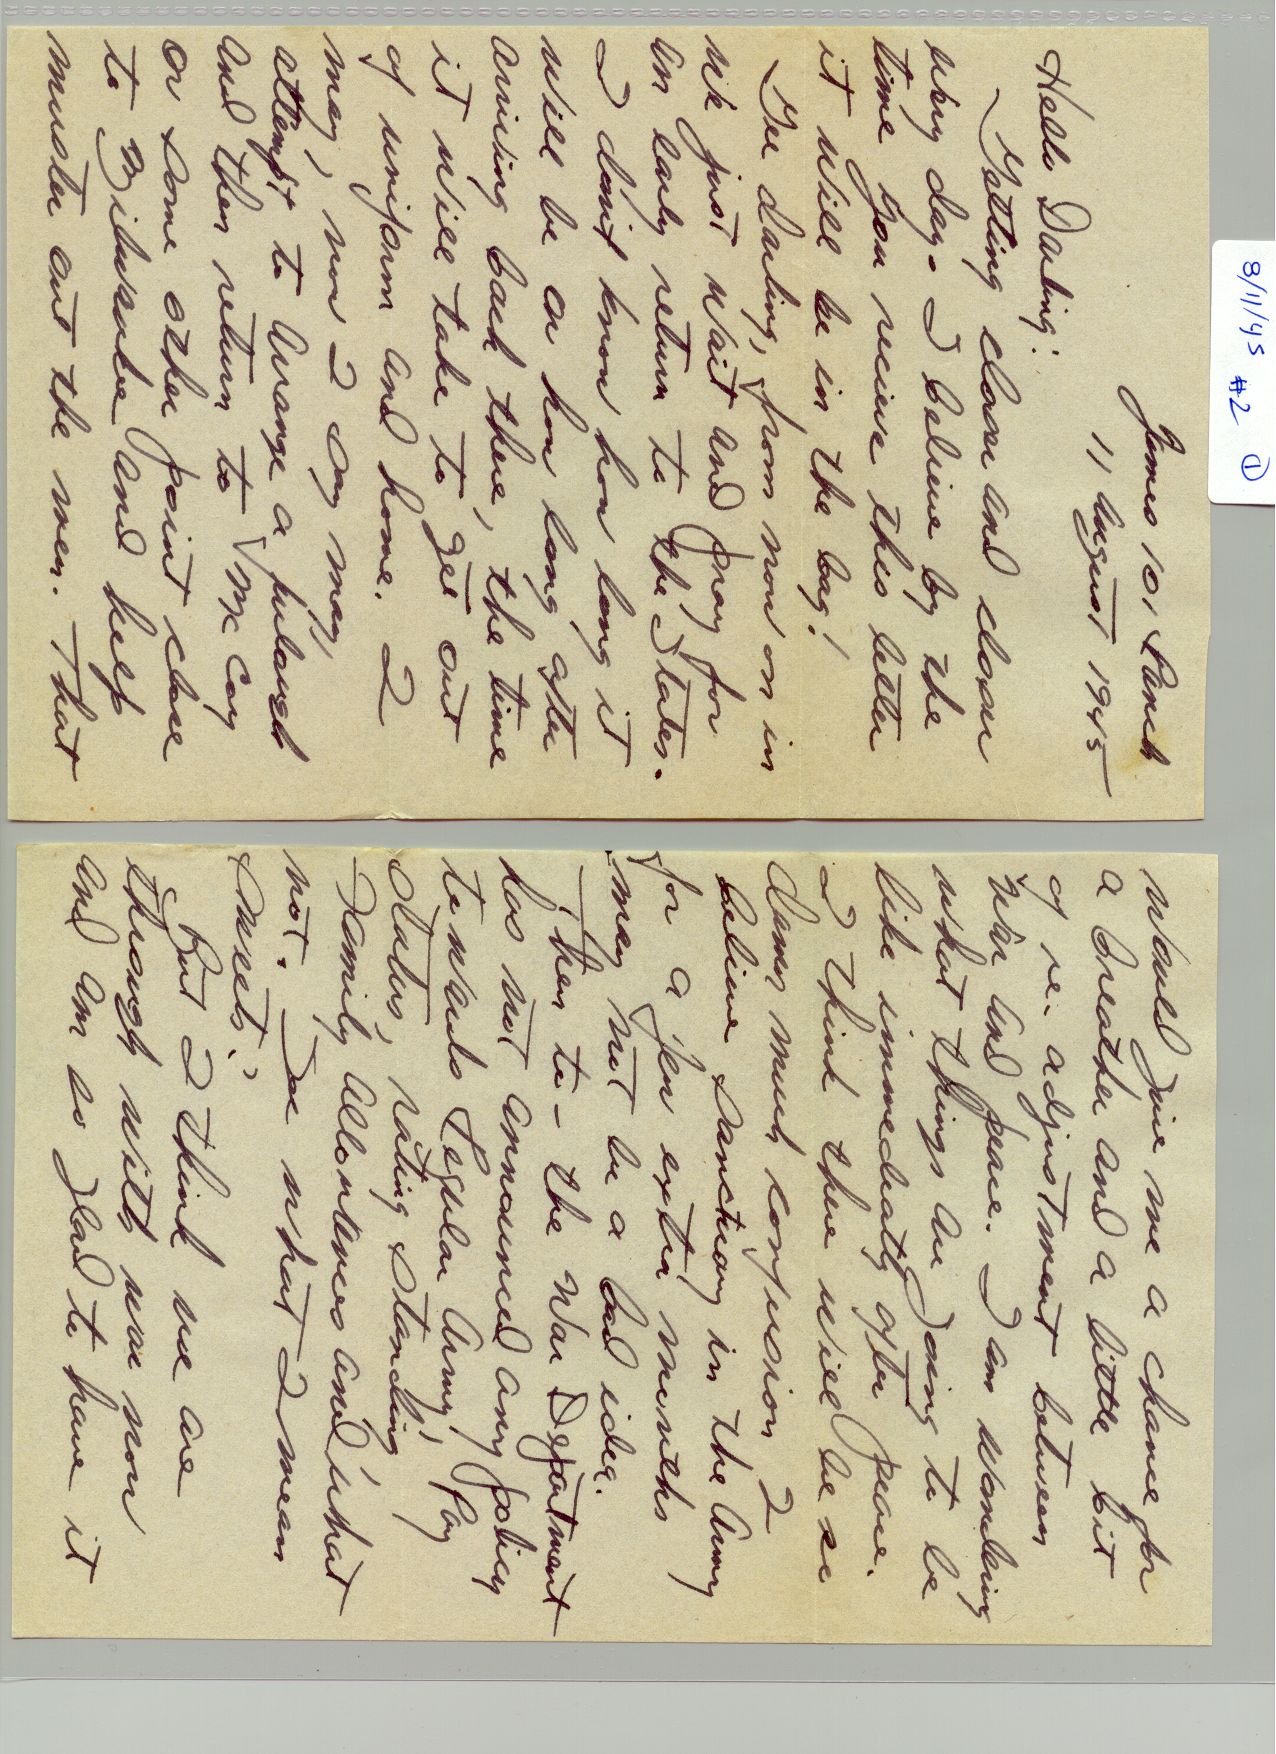 8/11/45 #2 ①
11 August 1945
Hello Darling:
Getting closer and closer
every day. I believe by the
time you receive this letter
it will be in the bag!
Gee darling, from now on in
we just wait and pray for
an early return to the States.
I don't know how long it
will be or how long after
arriving back there, the time
it will take to get out
of uniform and home. I
may, now I say may,
attempt to arrange a furlough
and then return to McCoy
or some other point close
to Milwaukee and help
muster out the men. That
would give me a chance for
a breather and a little bit
of re-adjustment between
war and peace. I am wondering
what things are going to be
like immediately after peace.
I think there will be so
damn much confusion I
believe sanctuary in the Army
for a few extra months
may not be a bad idea.
Then to - the War Department
has not announced any policy
towards Regular Army, Pay
status, rating standing
Family Allowances and what
not. See what I mean
sweets?
But I think we are
through with war now
and am so glad to have it